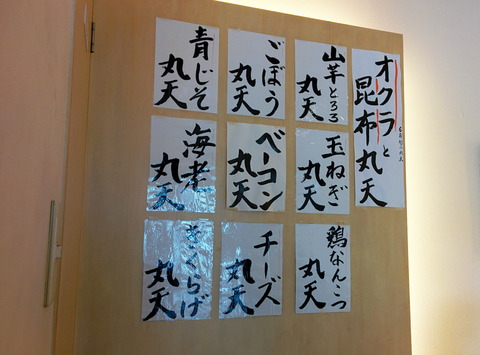 オクラと
昆布丸天
山芋とろろ
丸天
玉ねぎ
丸天
鶏なんこつ
丸天
ごぼう
丸天
ベーコン
丸天
チーズ
丸天
青じそ
丸天
海老
丸天
きくらげ
丸天